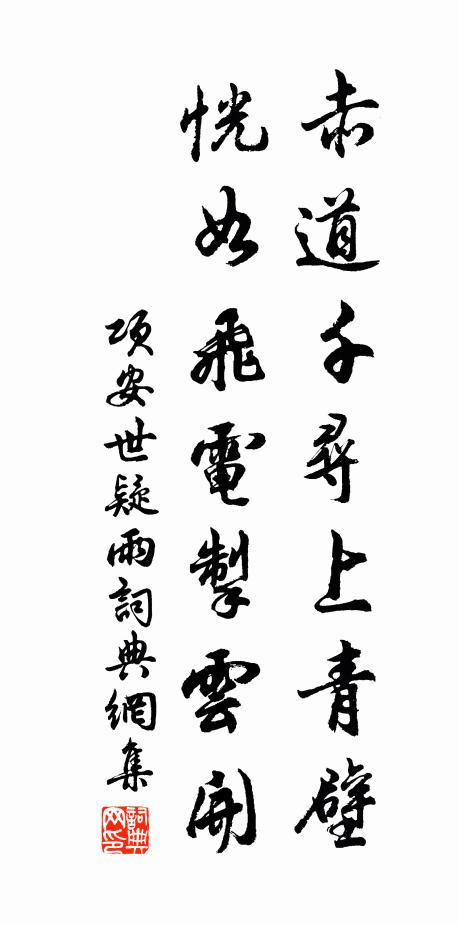 赤道千尋上青壁
恍如飛電掣雲開
項安世疑雨詞典網集
詞典网印